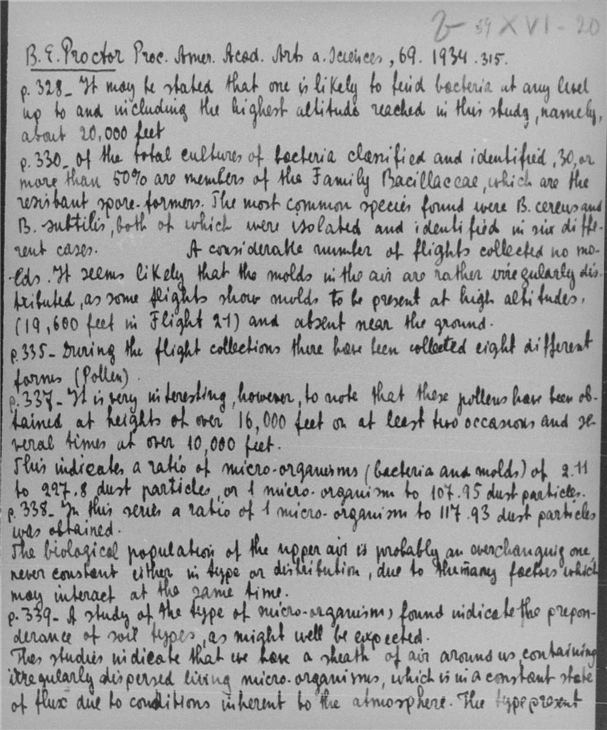 39 XVI - 20
B. E. Proctor Proc. Amer. Acad. Arts a. Sciences, 69. 1934. 315.
p. 328 - It may be stated that one is likely to find bacteria at any level
up to and including the highest altitude reached in this study, namely,
about 20,000 feet
p. 330 - Of the total cultures of bacteria classified and identified, 30, or
more than 50% are members of the Family Bacillaceae, which are the
resistant spore-formers. The most common species found were B. cereus and
B. subtilis, both of which were isolated and identified in six diffe-
rent cases. A considerable number of flights collected no mo-
lds. It seems likely that the molds in the air are rather irregularly dis-
tributed, as some flights show molds to be present at high altitudes,
(19,600 feet in Flight 21) and absent near the ground.
p. 335 - During the flight collections there have been collected eight different
forms (Pollen).
p. 337 - It is very interesting, however, to note that these pollens have been ob-
tained at heights of over 16,000 feet on at least two occasions and se-
veral times at over 10,000 feet.
This indicates a ratio of micro-organisms (bacteria and molds) of 2.11
to 227.8 dust particles, or 1 micro-organism to 107.95 dust particles.
p. 338 - In this series a ratio of 1 micro-organism to 117.93 dust particles
was obtained.
The biological population of the upper air is probably an everchanging one,
never constant either in type or distribution, due to the many factors which
may interact at the same time.
p. 339 - A study of the type of micro-organisms found indicate the prepon-
derance of soil types, as might well be expected.
Thes studies indicate that we have a sheath of air around us, containing
irregularly dispersed living micro-organisms, which is in a constant state
of flux due to conditions inherent to the atmosphere. The type present